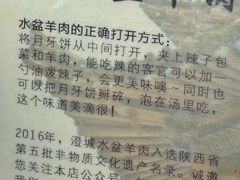 水盆羊肉的正确打开方式：
将月牙饼从中间打开，夹上辣子包
菜和羊肉，能吃辣的客官可以加一
勺油泼辣子，会更美味噢～同时也
可以把月牙饼掰碎，泡在汤里吃，
这个味道美滴很！
2016年，澄城水盆羊肉入选陕西省
第五批非物质文化遗产名录。诚邀
您关注本店公众号